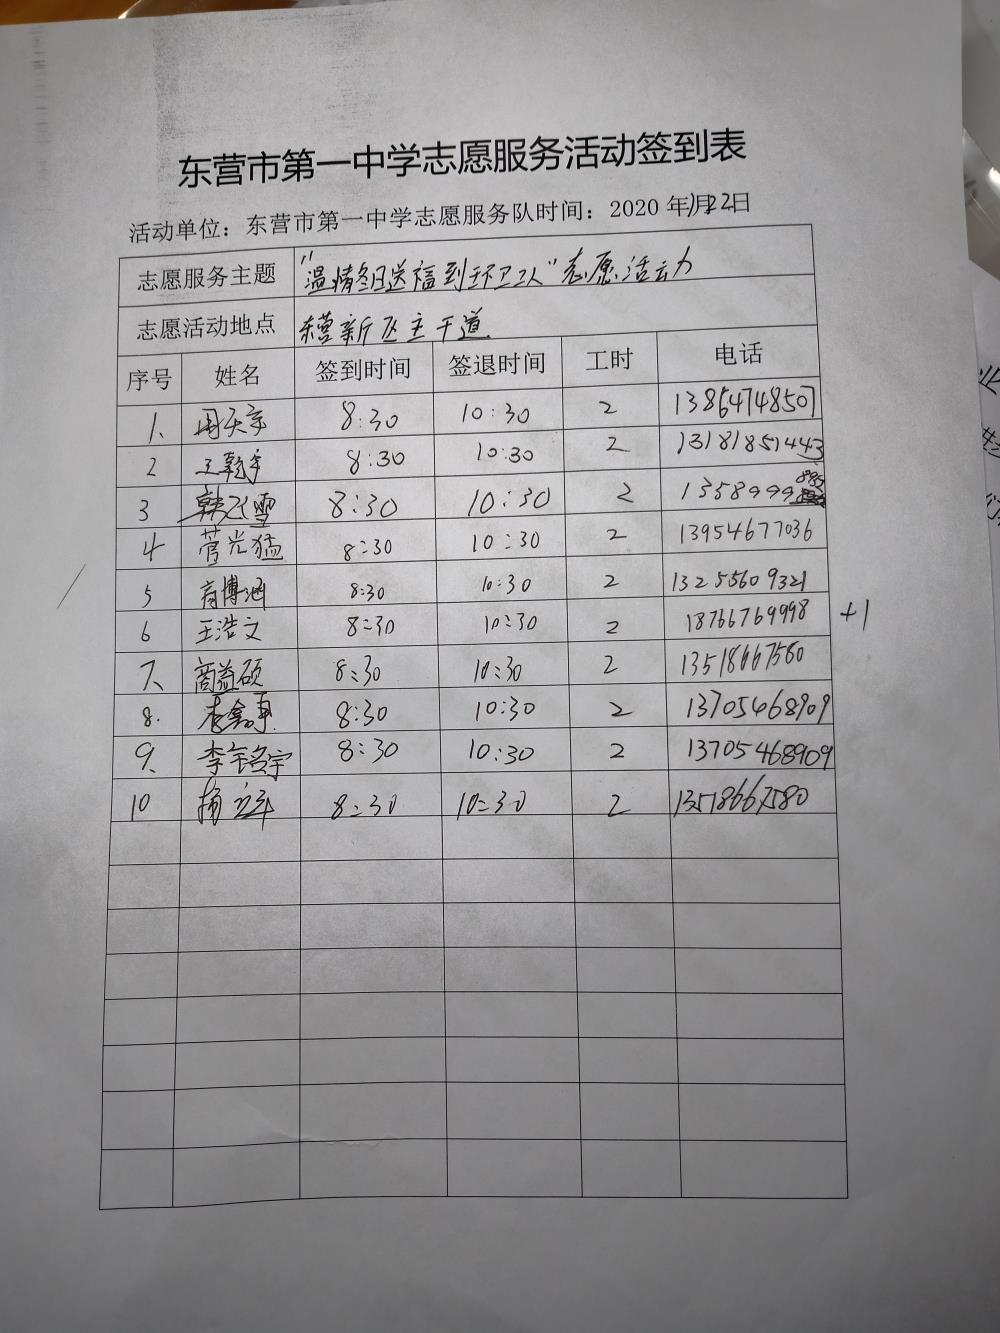 东营市第一中学志愿服务活动签到表
活动单位：东营市第一中学志愿服务队时间：2020年11月22日
志愿服务主题 "温情冬日送福到环卫工人"志愿活动
志愿活动地点 东营新区主干道
序号 姓名 签到时间 签退时间 工时 电话
1、 周天宇 8:30 10:30 2 13864748507
2 王乾宇 8:30 10:30 2 13181851443
3 韩飞雪 8:30 10:30 2 1358999
4 菅光猛 8:30 10:30 2 13954677036
5 商博涵 8:30 10:30 2 13255609321
6 王浩文 8:30 10:30 2 18766769998 +1
7、 商益硕 8:30 10:30 2 13518667580
8. 8:30 10:30 2 13705468909
9、 8:30 10:30 2 13705468909
10 8:30 10:30 2 13518667580